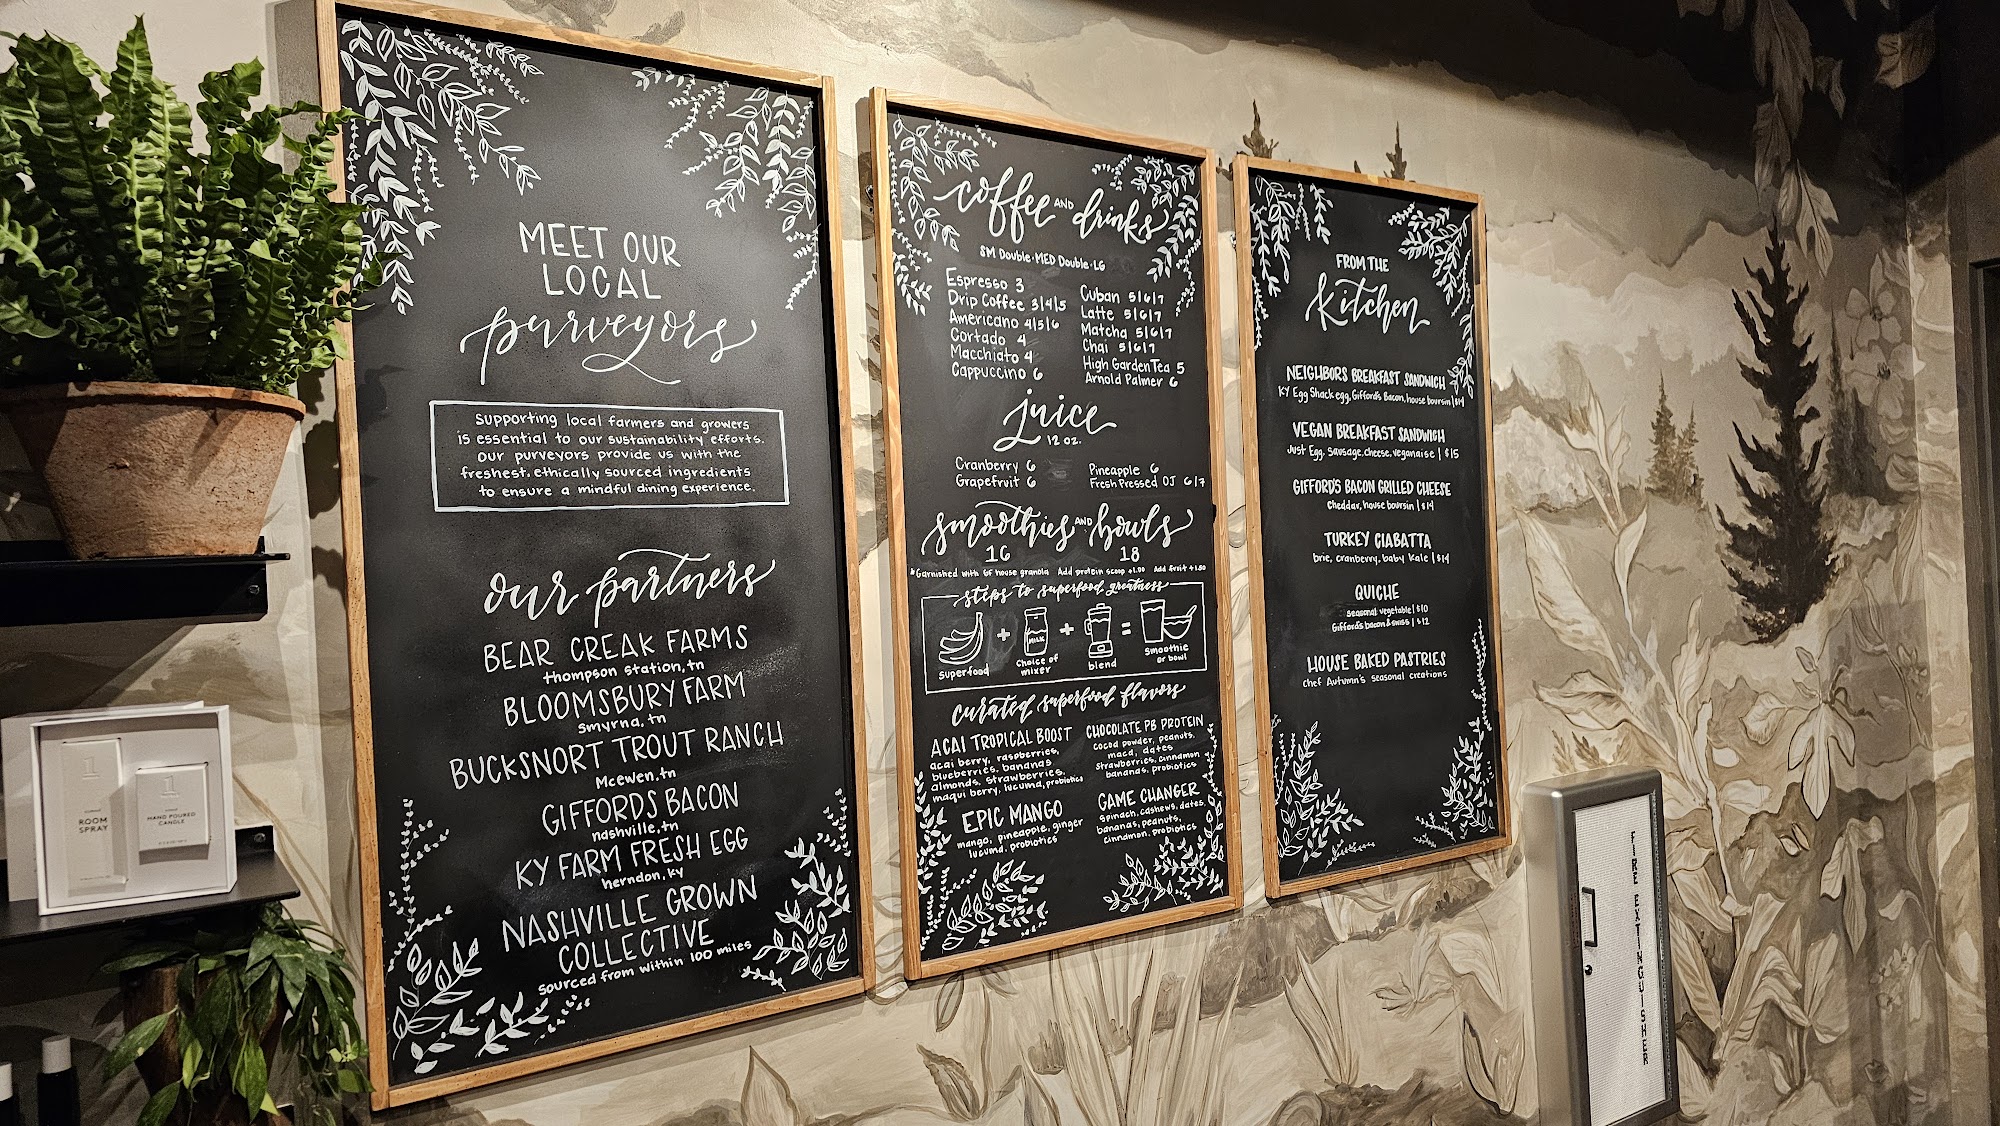 MEET OUR
LOCAL
purveyors
Supporting local farmers and growers
is essential to our sustainability efforts.
our purveyors provide us with the
freshest, ethically sourced ingredients
to ensure a mindful dining experience.
our partners
BEAR CREAK FARMS
thompson station, tn
BLOOMSBURY FARM
Smyrna, tn
BUCKSNORT TROUT RANCH
Mcewen, tn
GIFFORDS BACON
nashville, tn
KY FARM FRESH EGG
herndon, ky
NASHVILLE GROWN
COLLECTIVE
sourced from within 100 miles
coffee AND drinks
SM Double · MED Double · LG
Espresso 3
Drip Coffee 3/4/5
Americano 4/5/6
Cortado 4
Macchiato 4
Cappuccino 6
Cuban 5/6/7
Latte 5/6/7
Matcha 5/6/7
Chai 5/6/7
High Garden Tea 5
Arnold Palmer 6
juice
12 oz.
Cranberry 6
Grapefruit 6
Pineapple 6
Fresh Pressed OJ 6/7
smoothies AND bowls
16 18
*Garnished with GF house granola Add protein scoop +1.00 Add fruit +1.50
steps to superfood greatness
superfood
+
MILK
Choice of
mixer
+
blend
=
Smoothie
or bowl
curated superfood flavors
ACAI TROPICAL BOOST
acai berry, raspberries,
blueberries, bananas
almonds, strawberries,
maqui berry, lucuma, probiotics
EPIC MANGO
mango, pineapple, ginger
lucuma, probiotics
CHOCOLATE PB PROTEIN
cocoa powder, peanuts,
maca, dates
strawberries, cinnamon
bananas, probiotics
GAME CHANGER
Spinach, cashews, dates,
bananas, peanuts,
cinnamon, probiotics
FROM THE
Kitchen
NEIGHBORS BREAKFAST SANDWICH
KY Egg Shack egg, Gifford's Bacon, house boursin | $14
VEGAN BREAKFAST SANDWICH
Just Egg, Sausage, cheese, veganaise | $15
GIFFORD'S BACON GRILLED CHEESE
Cheddar, house boursin | $14
TURKEY CIABATTA
brie, cranberry, baby kale | $14
QUICHE
seasonal vegetable | $10
Gifford's bacon & swiss | $12
HOUSE BAKED PASTRIES
Chef Autumn's seasonal creations
1
ROOM
SPRAY
1
HAND POURED
CANDLE
FIRE EXTINGUISHER